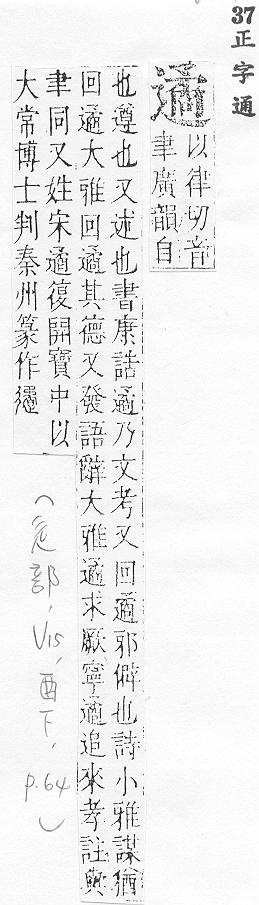 37正字通
遹
以律切音
聿廣韻自
也遵也又述也書康誥遹乃文考又回遹邪僻也詩小雅謀猶
回遹大雅回遹其德又發語辭大雅遹求厥寧遹追來孝註與
聿同又姓宋遹復開寶中以
大常博士判秦州篆作
(辵部, V15, 酉下, p.64)